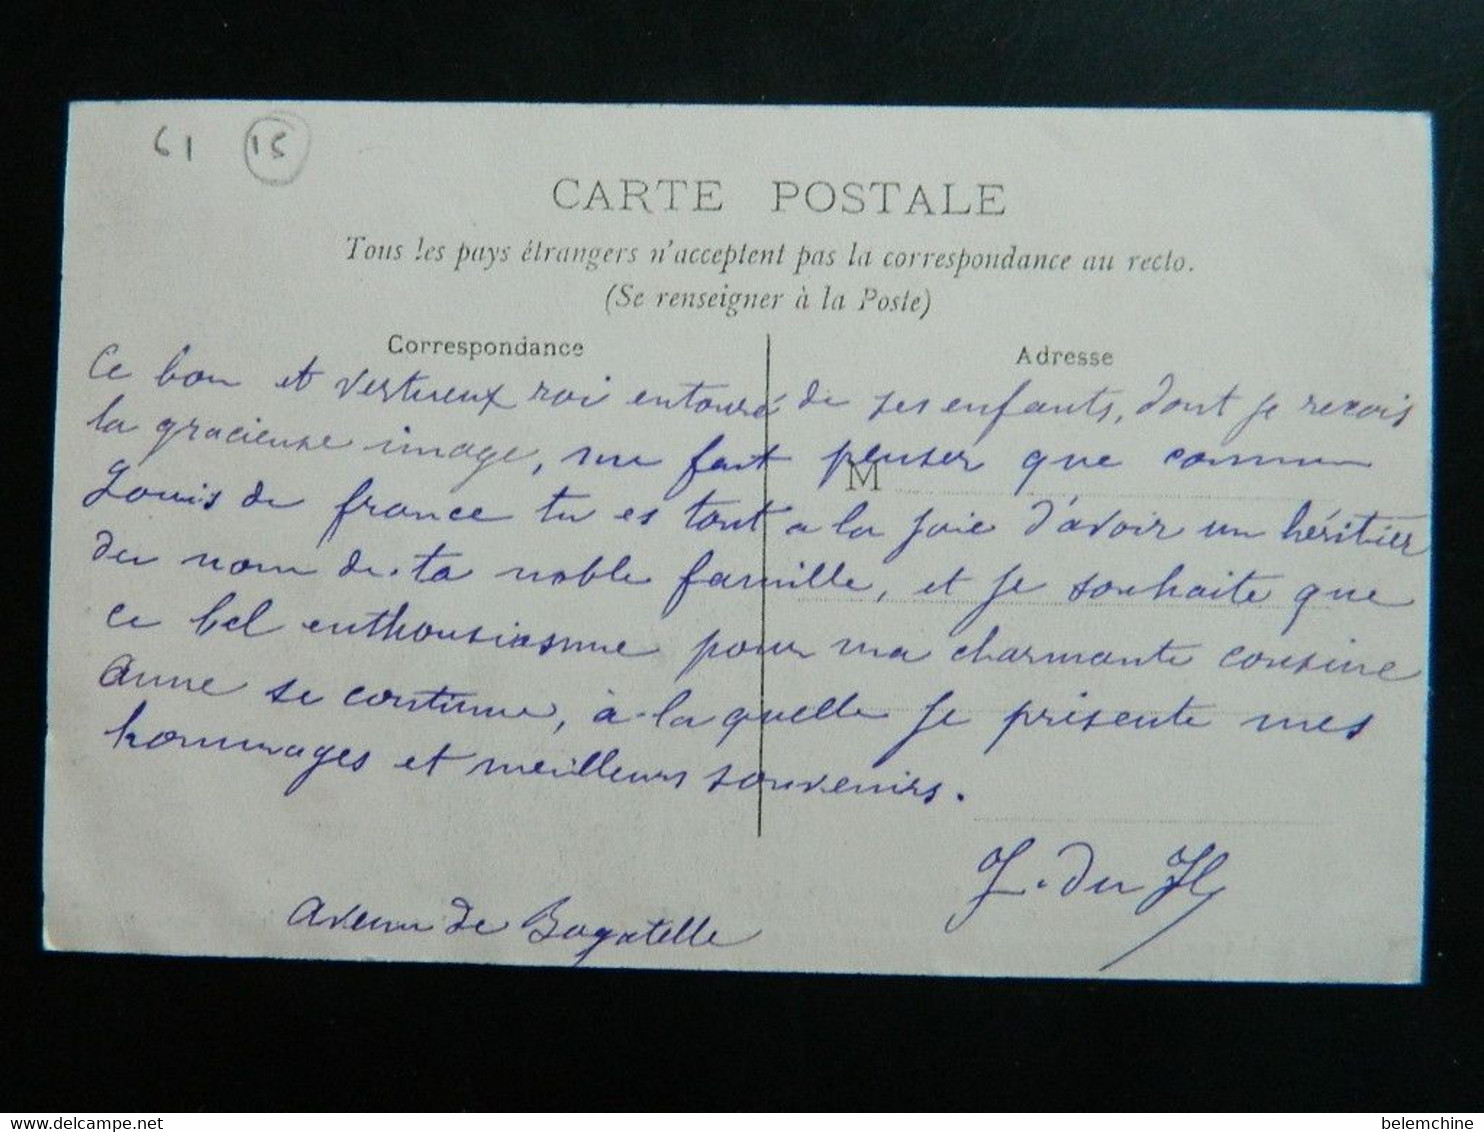 61 15
CARTE POSTALE
Tous les pays étrangers n'acceptent pas la correspondance au recto.
(Se renseigner à la Poste)
Correspondance
Adresse
Ce bon et vertueux roi entouré de ses enfants, dont je reçois
la gracieuse image, me fait penser que comme
M
Louis de france tu es tout a la joie d'avoir un héritier
du nom de ta noble famille, et je souhaite que
ce bel enthousiasme pour ma charmante cousine
Anne se continue, à laquelle je présente mes
hommages et meilleurs souvenirs.
J. du H
Avenue de Bagatelle
delcampe.net
belemchine